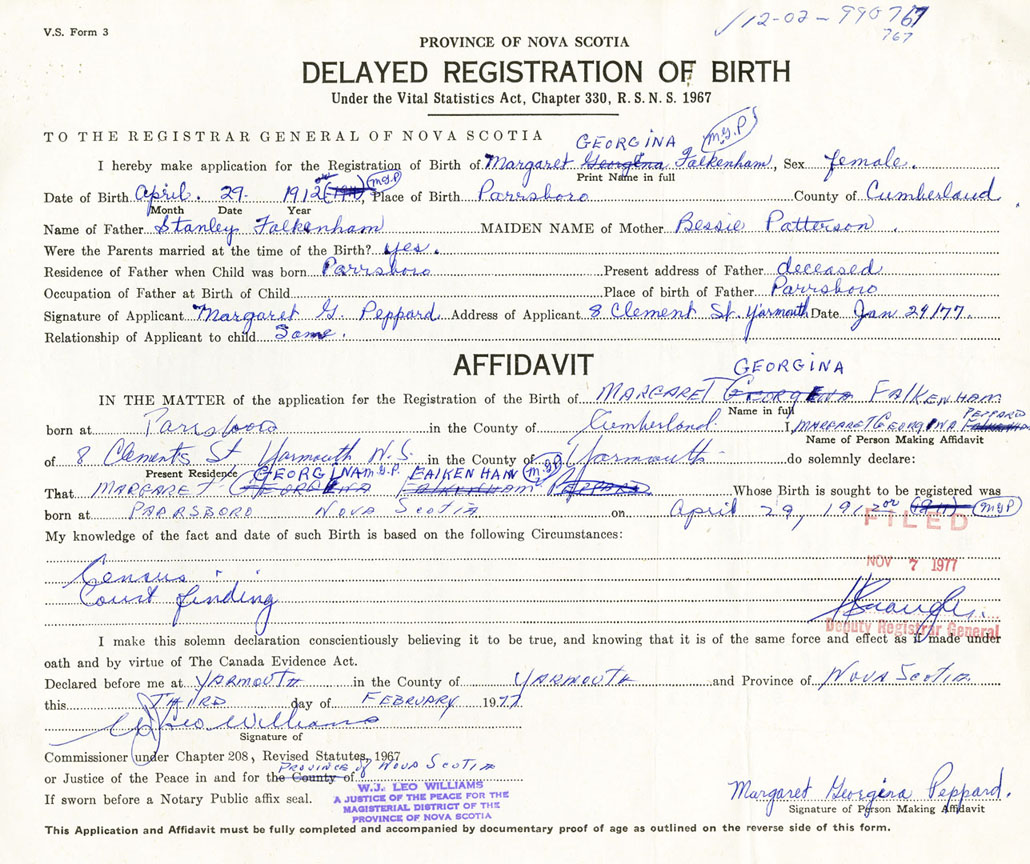 V.S. Form 3
12-02-990767
767
PROVINCE OF NOVA SCOTIA
DELAYED REGISTRATION OF BIRTH
Under the Vital Statistics Act, Chapter 330, R.S.N.S. 1967
TO THE REGISTRAR GENERAL OF NOVA SCOTIA
GEORGINA M.G.P
I hereby make application for the Registration of Birth of Margaret Georgina Falkenham, Sex female.
Print Name in full
Date of Birth April. 29. 1912 M.G.P, Place of Birth Parrsboro County of Cumberland
Month Date Year
Name of Father Stanley Falkenham MAIDEN NAME of Mother Bessie Patterson
Were the Parents married at the time of the Birth? yes.
Residence of Father when Child was born Parrsboro Present address of Father deceased
Occupation of Father at Birth of Child Place of birth of Father Parrsboro
Signature of Applicant Margaret G. Peppard Address of Applicant 8 Clement St. Yarmouth Date Jan 29/77.
Relationship of Applicant to child Same.
AFFIDAVIT
GEORGINA
IN THE MATTER of the application for the Registration of the Birth of MARGARET GEORGENA FALKENHAM
Name in full
PEPPARD
born at Parrsboro in the County of Cumberland. I MARGARET GEORGINA FALKENHAM
Name of Person Making Affidavit
of 8 Clements St Yarmouth N.S. in the County of Yarmouth do solemnly declare:
Present Residence
GEORGINA M.G.P. FALKENHAM M.G.P
That MARGARET GEORGENA FALKENHAM PEPPARD Whose Birth is sought to be registered was
born at PARRSBORO NOVA SCOTIA on April 29, 1912 M.G.P
FILED
My knowledge of the fact and date of such Birth is based on the following Circumstances:
NOV 7 1977
Census
Court finding
Deputy Registrar General
I make this solemn declaration conscientiously believing it to be true, and knowing that it is of the same force and effect as if made under
oath and by virtue of The Canada Evidence Act.
Declared before me at YARMOUTH in the County of YARMOUTH and Province of NOVA SCOTIA
this THIRD day of FEBRUARY 1977
Leo Williams
Signature of
Commissioner under Chapter 208, Revised Statutes, 1967
PROVINCE of NOVA SCOTIA
or Justice of the Peace in and for the County of
W.J. LEO WILLIAMS
A JUSTICE OF THE PEACE FOR THE
MAGISTERIAL DISTRICT OF THE
PROVINCE OF NOVA SCOTIA
If sworn before a Notary Public affix seal.
Margaret Georgina Peppard.
Signature of Person Making Affidavit
This Application and Affidavit must be fully completed and accompanied by documentary proof of age as outlined on the reverse side of this form.